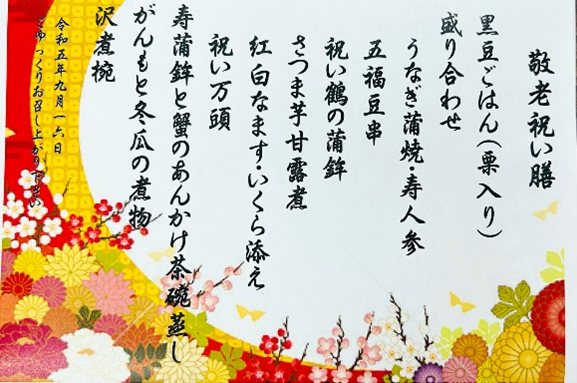 敬老祝い膳
黒豆ごはん(栗入り)
盛り合わせ
うなぎ蒲焼・寿人参
五福豆串
祝い鶴の蒲鉾
さつま芋甘露煮
紅白なます・いくら添え
祝い万頭
寿蒲鉾と蟹のあんかけ茶碗蒸し
がんもと冬瓜の煮物
沢煮椀
令和五年九月一六日
ごゆっくりお召し上がり下さい